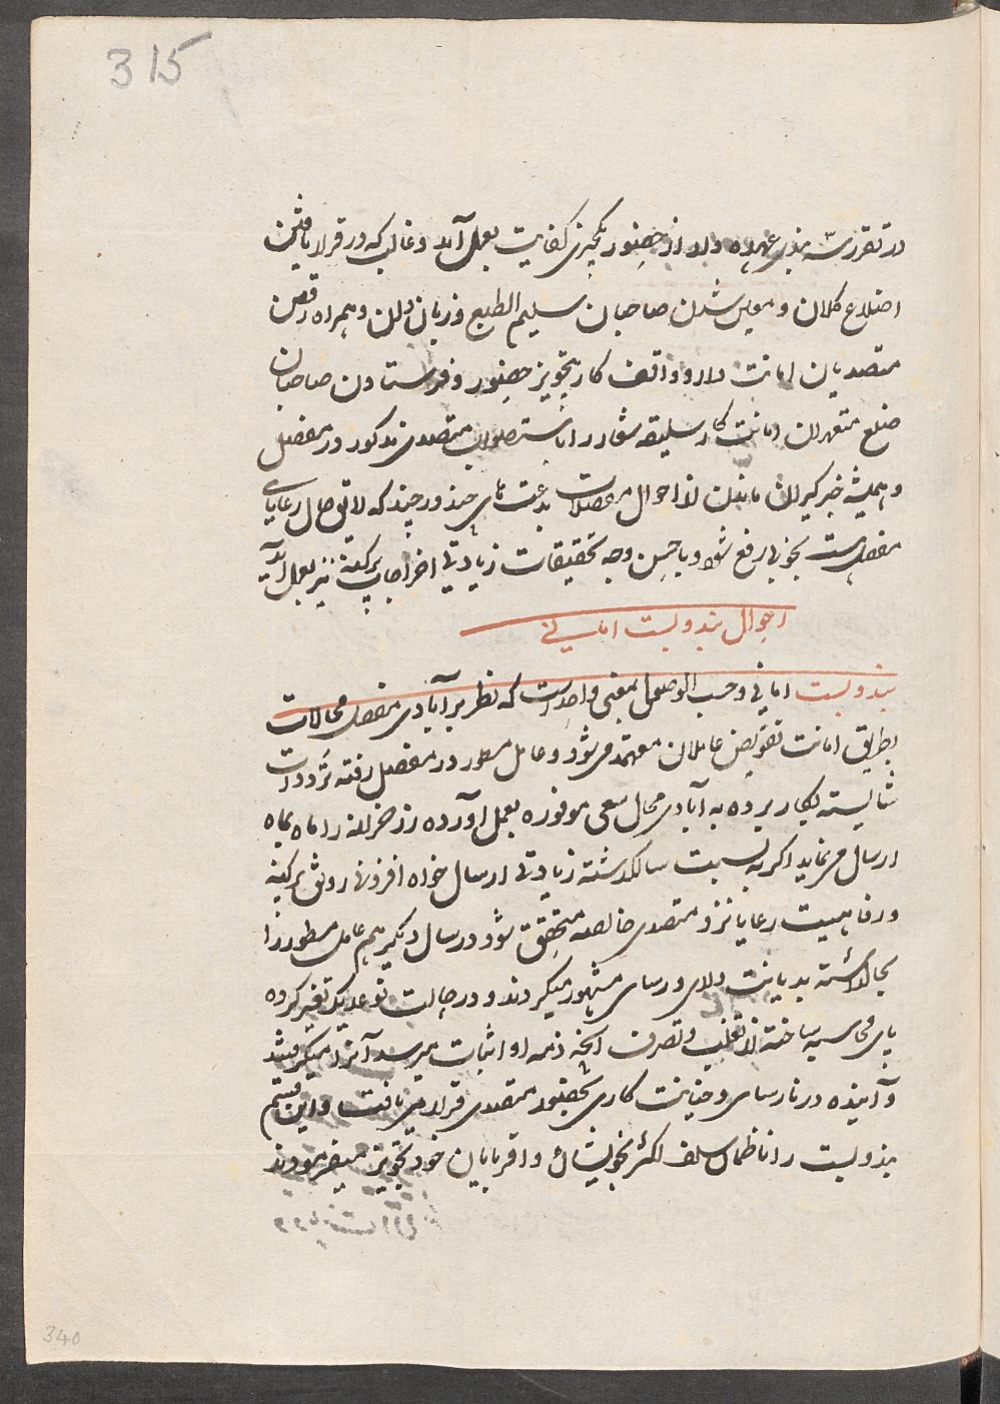 315
در تقرر سه بندی عهده دار از حضور نگیرند کفایت بعمل آید و غالب که در قرار یافتن
اضلاع کلان و معین شدن صاحبان سلیم الطبع و زبان دان و همراه رفتن
متصدیان امانت دار و واقف کار بتجویز حضور و فرستادن صاحبان
ضلع متعهدان امانت کار سلیقه شعار را باستصواب متصدی مذکور در مفصل
و همیشه خبرگیران ماندن از احوال مفصلات بدعت های چند در چند که لاحق حال رعایای
مفصل است بخوبی رفع شود و باحسن وجه تحقیقات زیادتی اخراجات پرگنه نیز بعمل آید
احوال بندوبست امانی
بندوبست امانی و حسب الوصول بمعنی واحد است که نظر بر آبادی مفصل محالات
بطریق امانت تفویض عاملان معتمد می شود و عامل مسطور در مفصل رفته ترددات
شایسته بکار برده به آبادی محال سعی موفوره بعمل آورده زر خزانه را ماه بماه
ارسال می نماید اگر به نسبت سال گذشته زیادتی ارسال خواه افزونی رونق پرگنه
و رفاهیت رعایا نزد متصدی خالصه متحقق شود در سال دیگر هم عامل مسطور را
بحال داشته بدیانت داری و رسای مشهور میگردند و در حالت نوعدیگر تغیر کرده
پای محاسبه ساخته از تغلب و تصرف آنچه ذمه او اثبات میرسد آنرا میگرفتند
و آینده در نارسای و خیانت کاری بحضور متصدی قرار می یافت و این قسم
بندوبست را ناظمان سلف اکثر بخویشان و اقربایان خود تجویز میفرمودند
340